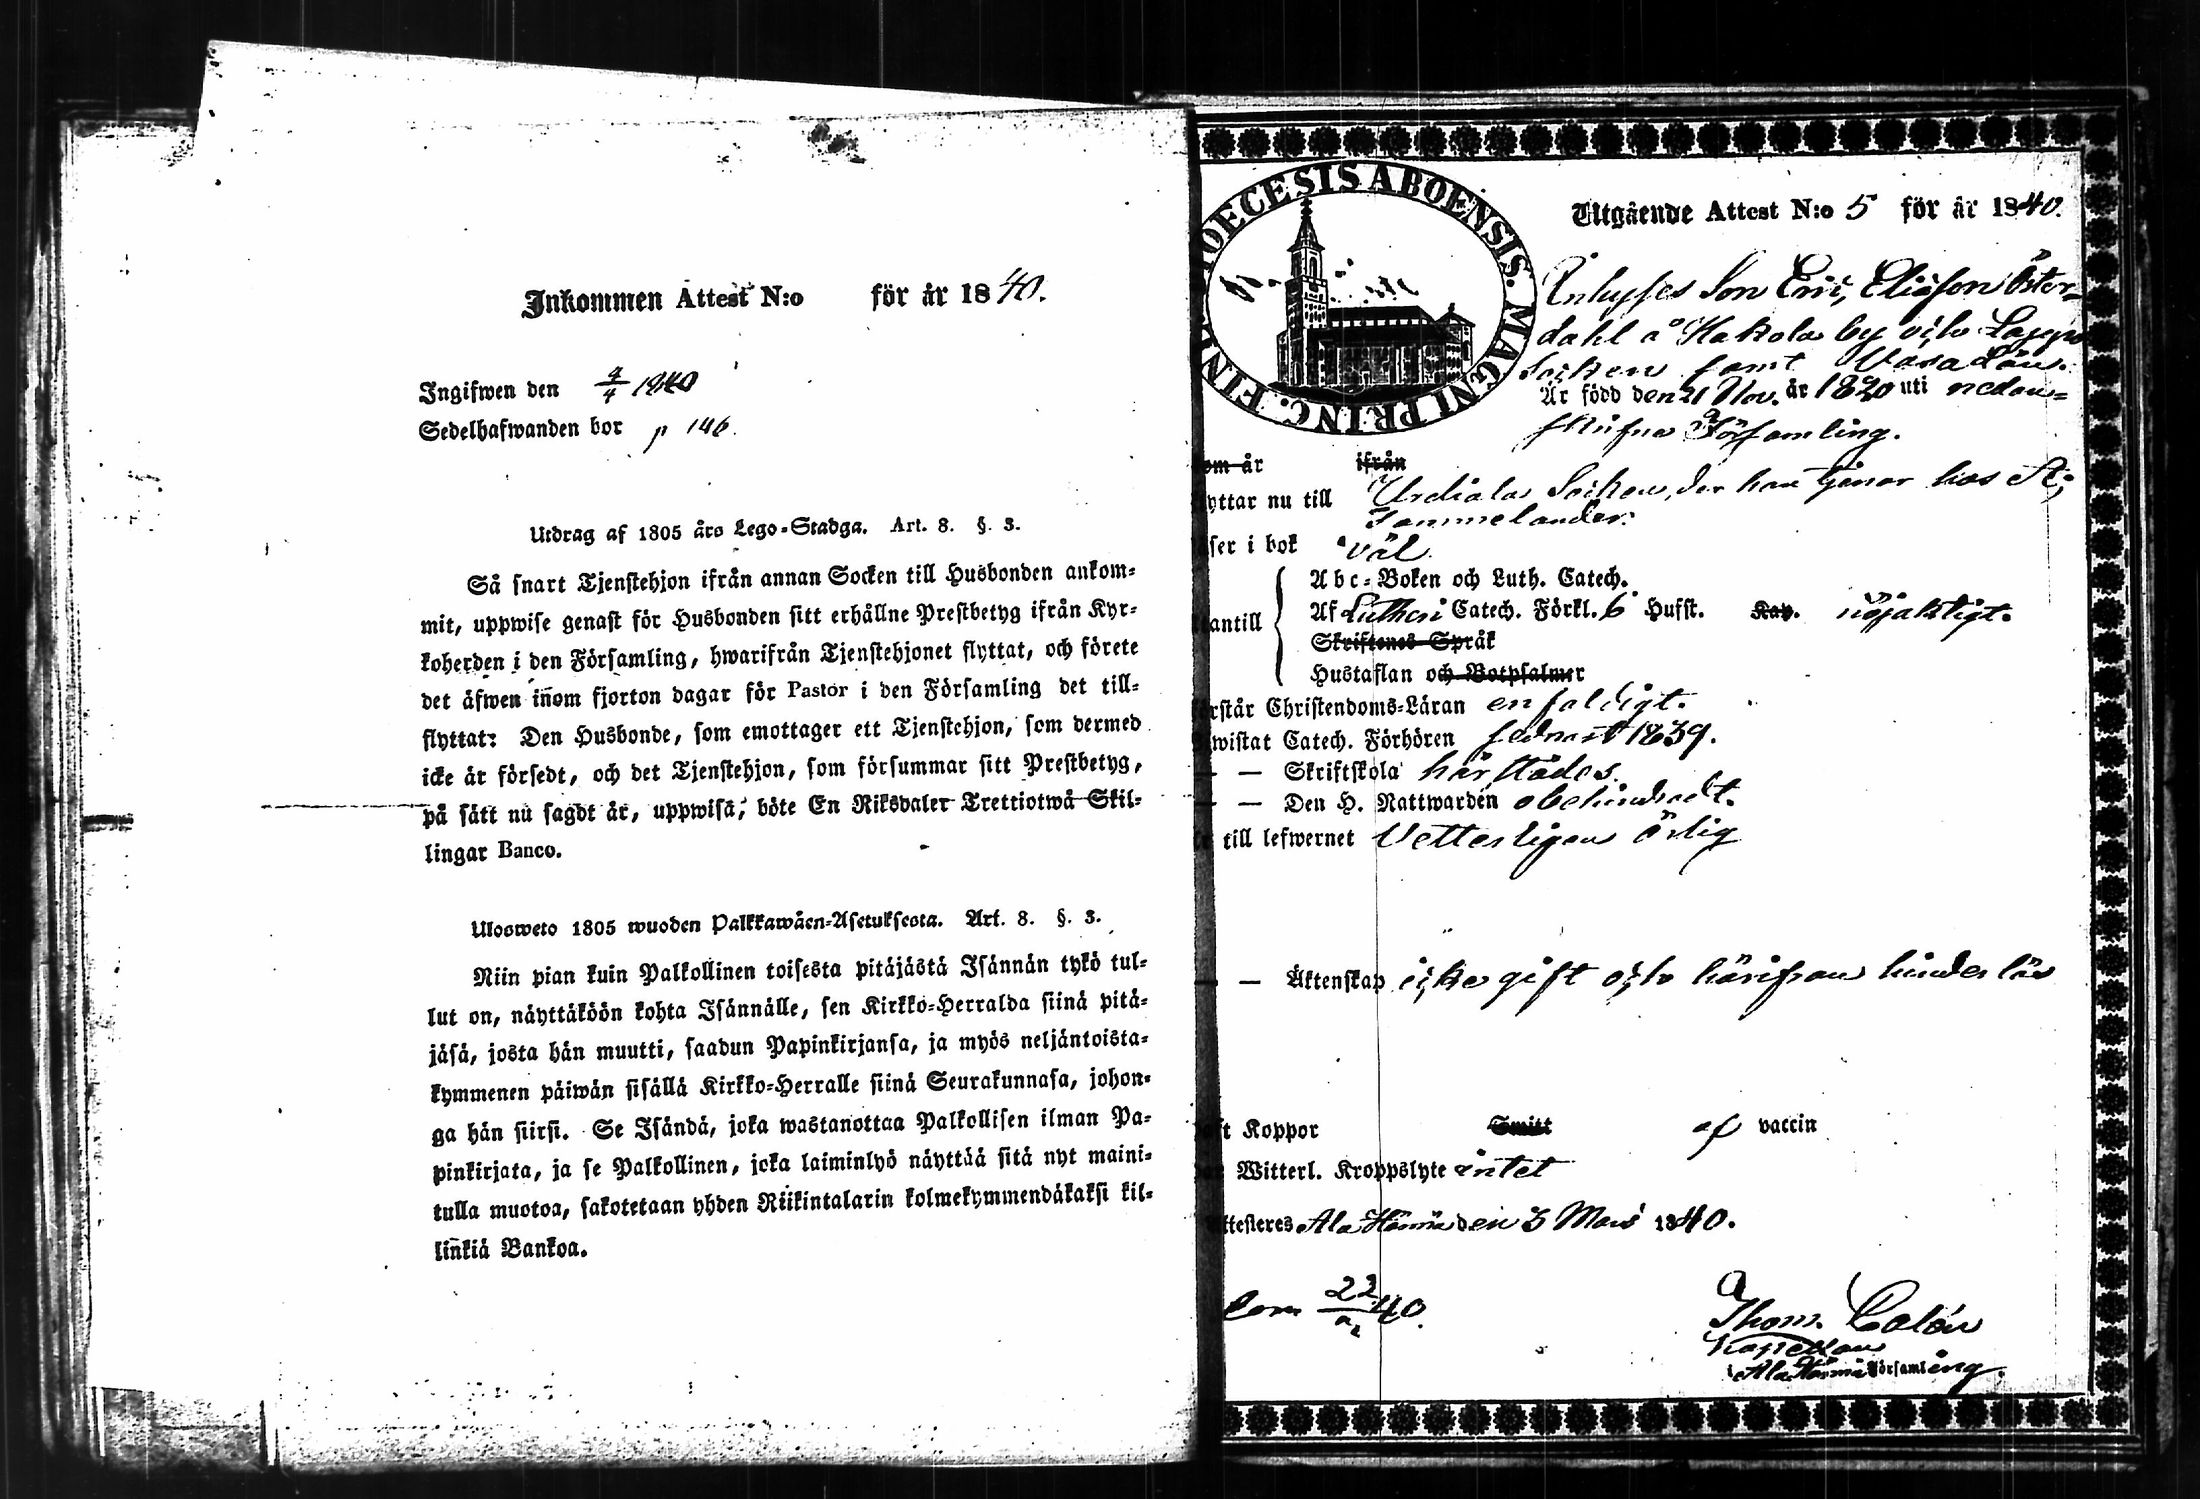 Inkommen Attest N:o för år 1840.
Ingifwen den 4/4 1840
Sedelhafwanden bor p 146.
Utdrag af 1805 års Lego-Stadga. Art. 8. §. 3.
Så snart Tjenstehjon ifrån annan Socken till Husbonden ankom-
mit, uppwise genast för Husbonden sitt erhållne Prestbetyg ifrån Kyr-
koherden i den Församling, hwarifrån Tjenstehjonet flyttat, och förete
det äfwen inom fjorton dagar för Pastor i den Församling det till-
flyttat: Den Husbonde, som emottager ett Tjenstehjon, som dermed
icke är försedt, och det Tjenstehjon, som försummar sitt Prestbetyg,
på sätt nu sagdt är, uppwisa, böte En Riksdaler Trettiotwå Skil-
lingar Banco.
Ulosweto 1805 wuoden Palkkawäen-Asetuksesta. Art. 8. §. 3.
Niin pian kuin Palkollinen toisesta pitäjästä Isännän tykö tul-
lut on, näyttäköön kohta Isännälle, sen Kirkko-Herralda siinä pitä-
jäsä, josta hän muutti, saadun Papinkirjansa, ja myös neljäntoista-
kymmenen päiwän sisällä Kirkko-Herralle siinä Seurakunnasa, johon-
ga hän siirsi. Se Isändä, joka wastanottaa Palkollisen ilman Pa-
pinkirjata, ja se Palkollinen, joka laiminlyö näyttää sitä nyt maini-
tulla muotoa, sakotetaan yhden Riikintalarin kolmekymmendäkaksi kil-
linkiä Bankoa.
DIOECESIS ABOENSIS. MAGNI PRINC. FINL.
Utgående Attest N:o 5 för år 1840.
Inhyses Son Eric Eliasson Öster-
dahl å Hakola by och Lappo
Socken samt Vasa Län.
Är född den 21 Nov. år 1820 uti nedan-
skrifne Församling.
om år ifrån
yttar nu till Urdiala Socken, der han tjenar hos A:
Tammelander.
äser i bok väl
antill Abc-Boken och Luth. Catech.
Af Lutheri Catech. Förkl. 6 Hufst. Kap. nöjaktigt.
Skriftenes Språk
Hustaflan och Botpsalmer
rstår Christendoms-Läran enfaldigt.
wistat Catech. Förhören sednast 1839.
— — Skriftskola härstädes.
— — Den H. Nattwarden obehindradt.
till lefwernet Vetterligen ärlig
— — Äktenskap icke gift och härifran hinderlös
aft Koppor Smitt af vaccin
Witterl. Kroppslyte intet
ttesteres Ala Härmä den 3 Mars 1840.
22 40.
Thom.
Kapellan
i Ala Härmä Församling.